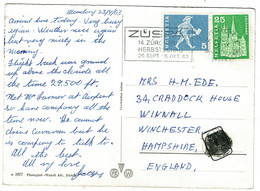 Monday 23/9/63
Arrived here today. Very busy
again. Weather well again
but very misty in the
morning.
Flight back was good
up above the clouds all
the time 29,500 ft.
Met Mr Warner at Airport
so have company all the
time now. He cannot
but he
is company to talk to.
All the best.
All my love,
ZÜSPA
14. ZÜRCH
HERBST
26. SEPT. - 6. OKT. 63
HELVETIA
5
HELVETIA
25
MRS H.M. EDE,
34, CRADDOCK HOUSE
WINNALL
WINCHESTER
HAMPSHIRE,
ENGLAND.